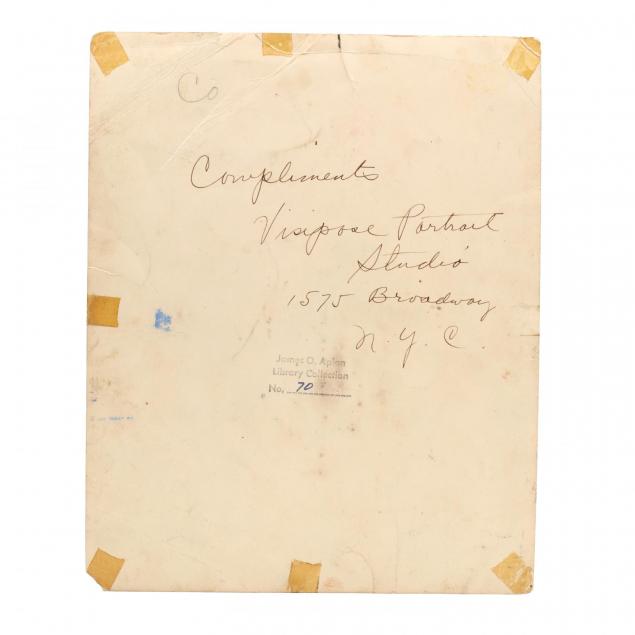 Co
Compliments
Visipose Portrait
Studio
1575 Broadway
N. Y. C.
James O. Aplan
Library Collection
No. 70